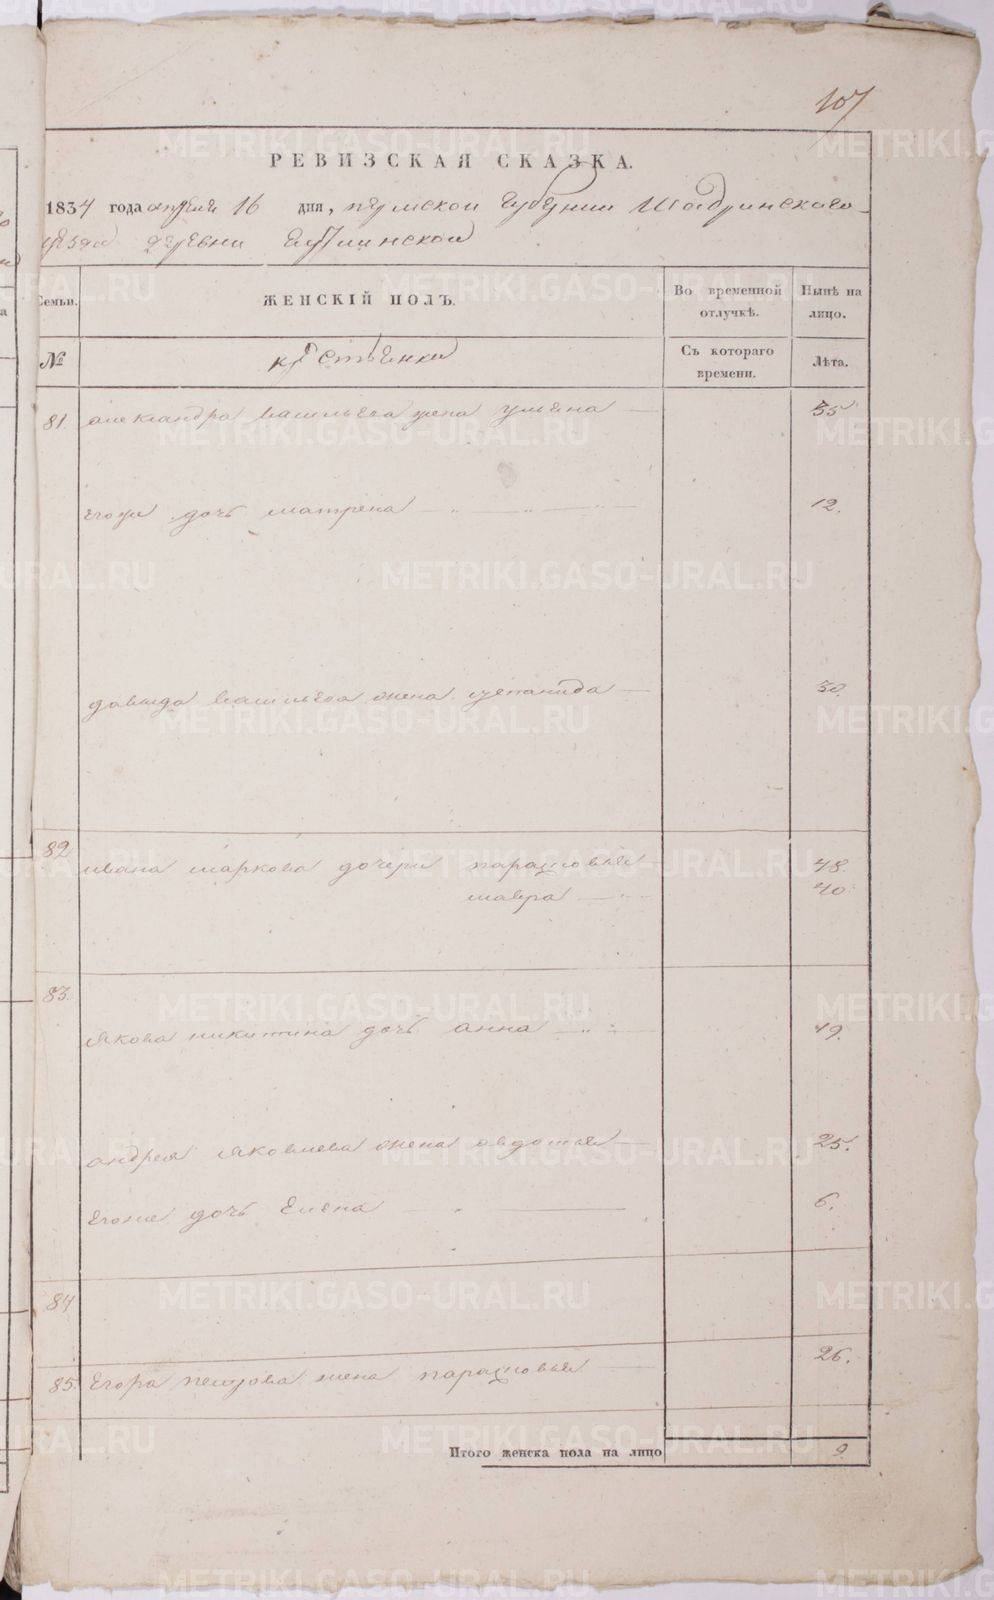 107
РЕВИЗСКАЯ СКАЗКА.
1834 года апреля 16 дня, пермской губернии Шадринскаго
уезда деревни
Семьи. ЖЕНСКІЙ ПОЛЪ. Во временной отлучкѣ. Нынѣ на лицо.
№ Съ котораго времени. Лѣта.
81 александра васильева жена ульена 35
Егоже дочь матрена 12.
давыда васильева жена степанида 30.
82 ивана маркова дочери парасковья 48.
мавра 40.
83. якова никитина дочь анна 49.
андрея яковлева жена авдотья 25.
Егоже дочь Елена 6.
84
85. Егора жена парасковья 26.
Итого женска пола на лицо 9.
METRIKI.GASO-URAL.RU